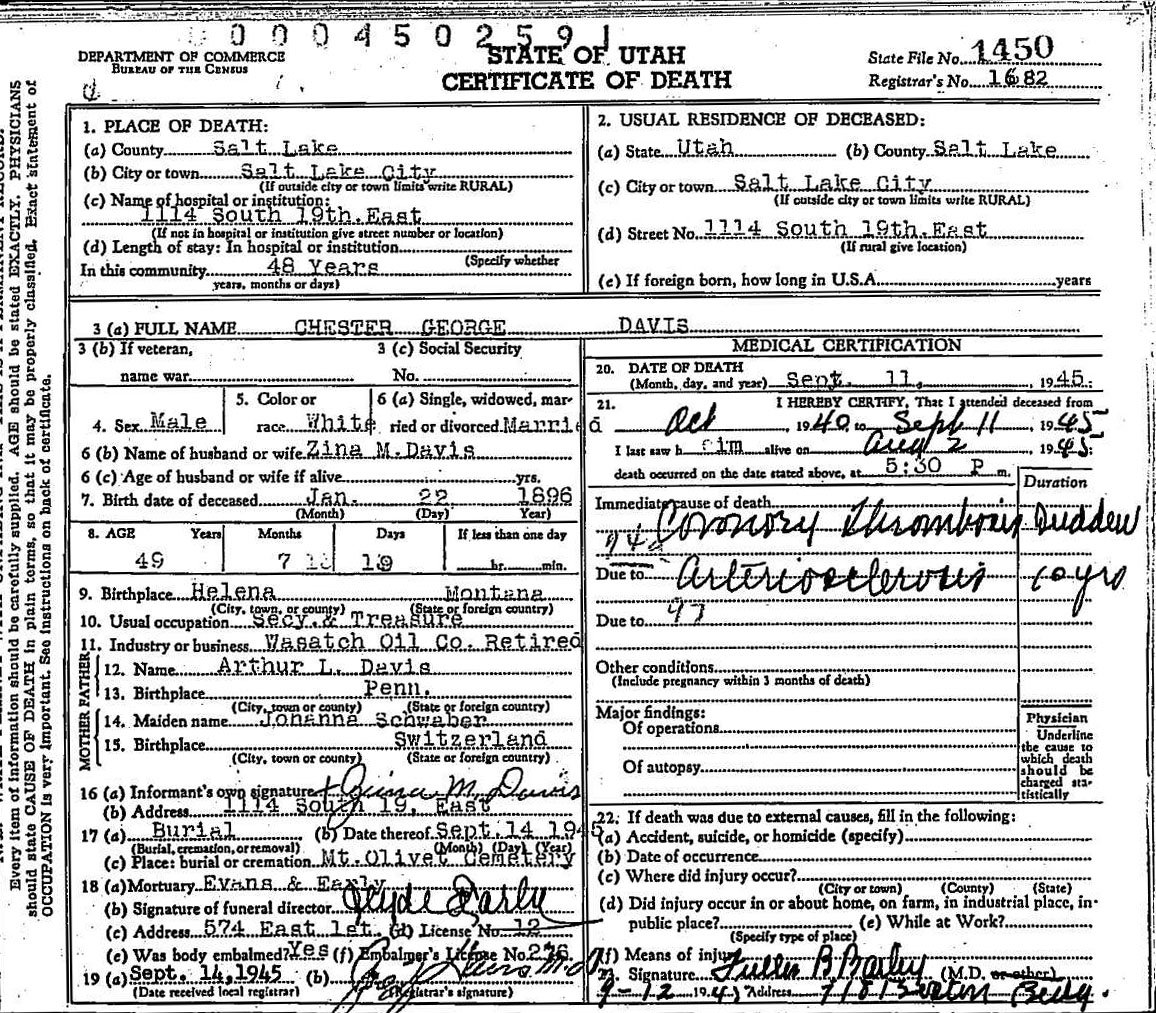 0004502591
DEPARTMENT OF COMMERCE
BUREAU OF THE CENSUS
STATE OF UTAH
CERTIFICATE OF DEATH
State File No. 1450
Registrar's No. 1682
Every item of information should be carefully supplied. AGE should be stated EXACTLY. PHYSICIANS
should state CAUSE OF DEATH in plain terms, so that it may be properly classified. Exact statement of
OCCUPATION is very important. See instructions on back of certificate.
1. PLACE OF DEATH:
(a) County Salt Lake
(b) City or town Salt Lake City
(If outside city or town limits write RURAL)
(c) Name of hospital or institution:
1114 South 19th. East
(If not in hospital or institution give street number or location)
(d) Length of stay: In hospital or institution
(Specify whether
In this community 48 Years
years, months or days)
2. USUAL RESIDENCE OF DECEASED:
(a) State Utah (b) County Salt Lake
(c) City or town Salt Lake City
(If outside city or town limits write RURAL)
(d) Street No. 1114 South 19th. East
(If rural give location)
(e) If foreign born, how long in U.S.A. years
3 (a) FULL NAME CHESTER GEORGE DAVIS
3 (b) If veteran, 3 (c) Social Security
name war No.
5. Color or 6 (a) Single, widowed, mar-
4. Sex Male race White ried or divorced Married
6 (b) Name of husband or wife Zina M. Davis
6 (c) Age of husband or wife if alive yrs.
7. Birth date of deceased Jan. 22 1896
(Month) (Day) Year)
8. AGE Years Months Days If less than one day
49 7 19 hr. min.
9. Birthplace Helena Montana
(City, town, or county) (State or foreign country)
10. Usual occupation Secy. & Treasure
11. Industry or business Wasatch Oil Co. Retired
FATHER
12. Name Arthur L. Davis
13. Birthplace Penn.
(City, town or county) (State or foreign country)
MOTHER
14. Maiden name Johanna Schwaber
15. Birthplace Switzerland
(City, town or county) (State or foreign country)
16 (a) Informant's own signature Zina M. Davis
(b) Address 1114 South 19, East
17 (a) Burial (b) Date thereof Sept. 14 1945
(Burial, cremation, or removal) (Month) (Day) (Year)
(c) Place: burial or cremation Mt. Olivet Cemetery
18 (a) Mortuary Evans & Early
(b) Signature of funeral director
(c) Address 574 East 1st. (d) License No. 12
(e) Was body embalmed? Yes (f) Embalmer's License No. 236
19 (a) Sept. 14, 1945 (b)
(Date received local registrar) (Registrar's signature)
MEDICAL CERTIFICATION
20. DATE OF DEATH
(Month, day, and year) Sept. 11, , 1945.
21. I HEREBY CERTIFY, That I attended deceased from
Oct , 1940, to Sept 11 , 1945
I last saw him alive on Aug 2 , 1945.
death occurred on the date stated above, at 5:30 P m.
Duration
Immediate cause of death
Coronory Thrombosis Sudden
94a
Due to Arteriosclerosis 10 yrs
Due to 97
Other conditions
(Include pregnancy within 3 months of death)
Major findings:
Of operations
Of autopsy
Physician
Underline
the cause to
which death
should be
charged sta-
tistically
22. If death was due to external causes, fill in the following:
(a) Accident, suicide, or homicide (specify)
(b) Date of occurrence
(c) Where did injury occur?
(City or town) (County) (State)
(d) Did injury occur in or about home, on farm, in industrial place, in-
public place? (e) While at Work?
(Specify type of place)
(f) Means of injury
23. Signature Fuller B Bailey (M.D. or other)
9-12 194 Address 718 Boston Bldg.